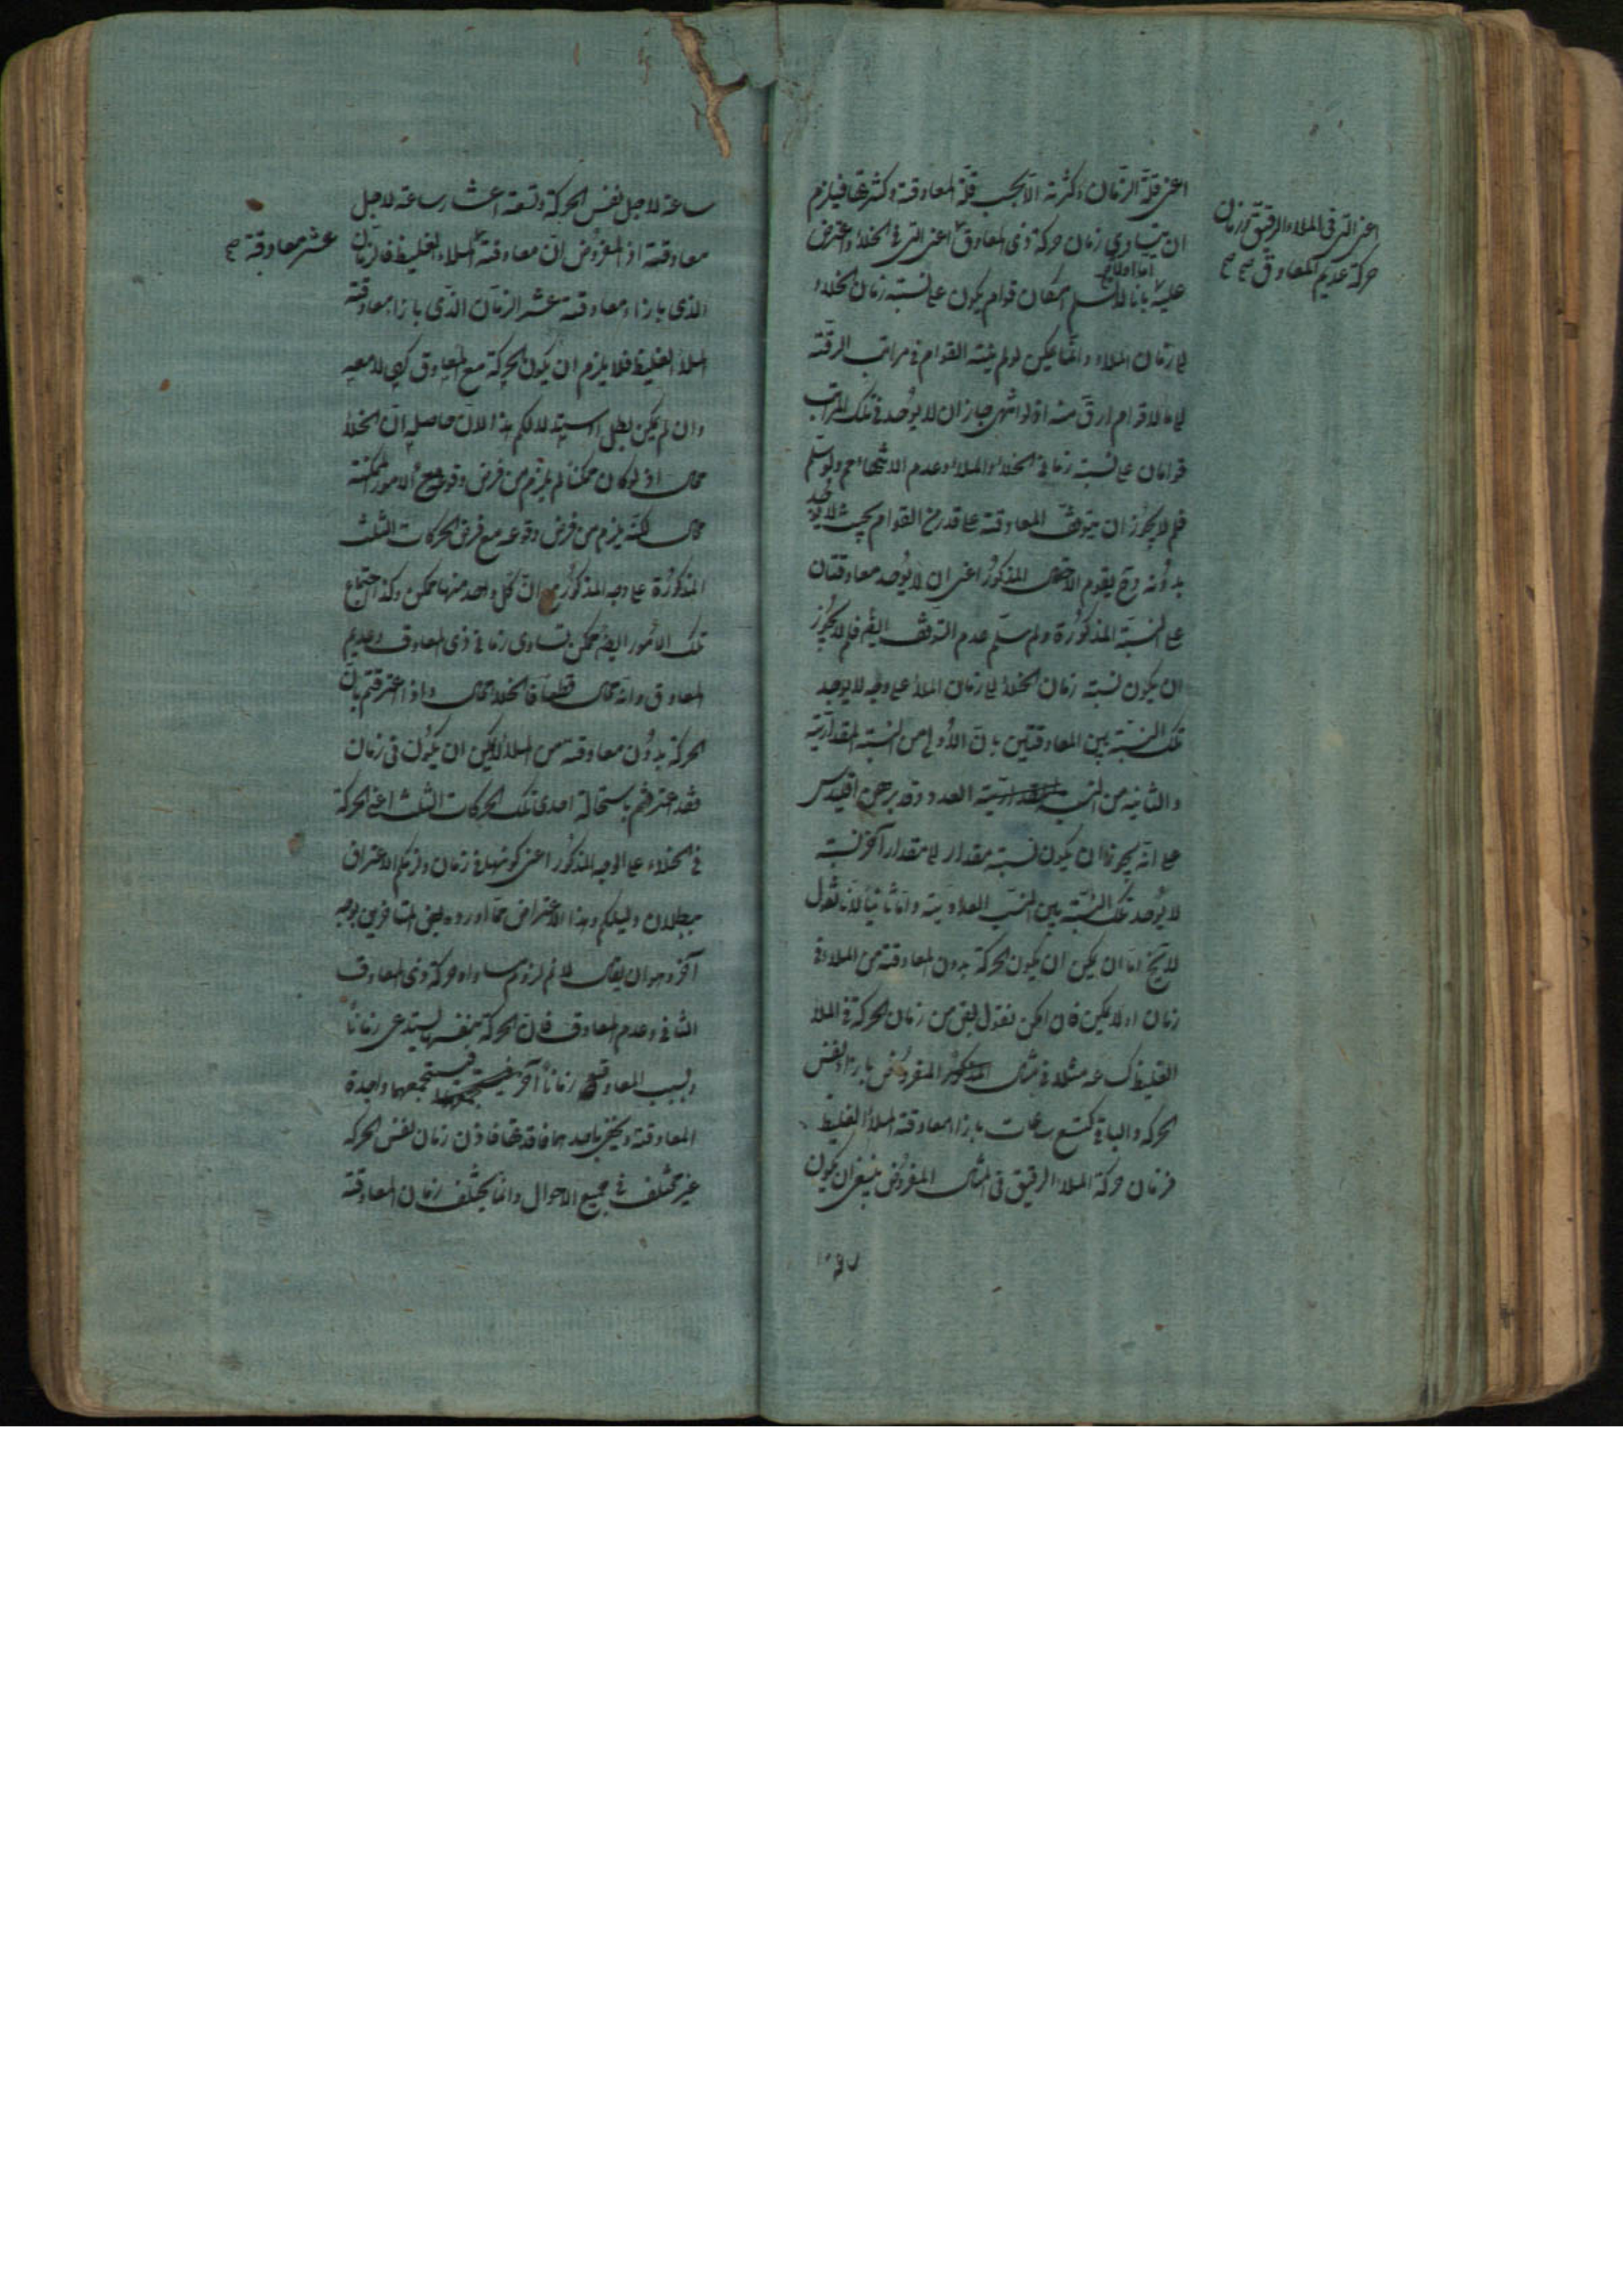 اعنى قلة الزمان وكثرته الا بحسب قلة المعاوقة وكثرتها فيلزم
ان يتساوى زمان حركة ذى المعاوق اعنى التى فى الخلاء واعترض
اعنى التى فى الملاء الرقيق وزمان
حركة عديم المعاوق صح صح
عليه بانا لا نسلم امكان قوام يكون على نسبة زمان الخلاء
اما اولا
الى زمان الملاء وانما يمكن لو لم ينته القوام فى مراتب الرقة
الى ما لا قوام ارق منه اذ لو انتهى جاز ان لا يوجد فى تلك المراتب
قوامان على نسبة زمانى الخلاء والملاء وعدم الانتهاء مم ولو سلم
فلم لا يجوز ان يتوقف المعاوقة على قدر من القوام بحيث لا يوجد
بدونه وح يقوم الاحتمال المذكور اعنى ان لا يوجد معاوقتان
على النسبة المذكورة ولو سلم عدم التوقف ايضا فلم لا يجوز
ان يكون نسبة زمان الخلاء الى زمان الملاء على وجه لا يوجد
تلك النسبة بين المعاوقتين بان الاولى من النسبة المقدارية
والثانية من النسبة العددية وقد برهن اقليدس
على انه يجوز ان يكون نسبة مقدار الى مقدار آخر نسبة
لا يوجد تلك النسبة بين النسب العددية واما ثانيا لانا نقول
لا يخ اما ان يمكن ان يكون الحركة بدون المعاوقة من الملاء فى
زمان او لا يمكن فان امكن نقول بعض من زمان الحركة فى الملاء
الغليظ كساعة مثلا فى المثال المفروض بازاء نفس
الحركة والباقى كتسع ساعات بازاء معاوقة الملاء الغليظ
فزمان حركة الملاء الرقيق فى المثال المفروض ينبغى ان يكون
ساعة لاجل نفس الحركة وتسعة اعشار ساعة لاجل
معاوقته اذ المفروض ان معاوقته الملاء الغليظ فالزمان
عشر معاوقة صح
الذى بازاء معاوقته عشر الزمان الذى بازاء معاوقة
الملاء الغليظ فلا يلزم ان يكون الحركة مع المعاوق كهى لا معه
وان لم يكن بطل استدلالكم هذا لان حاصله ان الخلاء
محال اذ لو كان ممكنا لم يلزم من فرض وقوعه مع الامور الممكنة
محال لكنه يلزم من فرض وقوعه مع فرض الحركات الثلث
المذكورة على وجه المذكور مع ان كل واحد منها ممكن وكذا اجتماع
تلك الامور ايضا ممكن تساوى زمانى ذى المعاوق وعديم
المعاوق وانه محال قطعا فالخلاء محال واذا اعترفتم بان
الحركة بدون معاوقة من الملاء لا يمكن ان يكون فى زمان
فقد اعترفتم باستحالة احدى تلك الحركات الثلث اعنى الحركة
فى الخلاء على الوجه المذكور اعنى كونها فى زمان ولزمكم الاعتراف
ببطلان دليلكم وهذا الاعتراض مما اورده بعض المتاخرين بوجه
آخر وهو ان يقال لا نم لزوم مساواة حركة ذى المعاوق
الثانى وعدم المعاوق فان الحركة بنفسها يستدعى زمانا
وبسبب المعاوقة زمانا آخر فيستجمعهما واجدة
المعاوقة ويختص باحدهما فاقدتها فاذن زمان نفس الحركة
غير مختلف فى جميع الاحوال وانما يختلف زمان المعاوقة